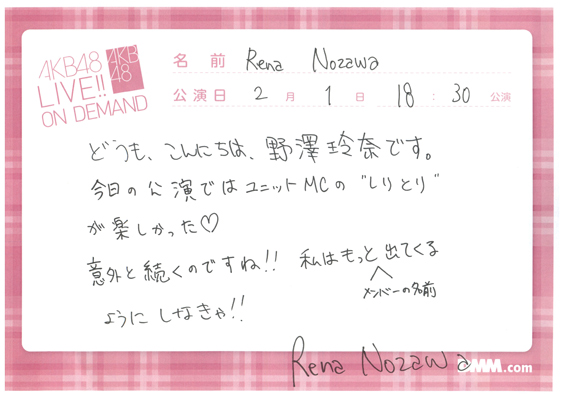 AKB48
LIVE!!
ON DEMAND
AKB
48
名前 Rena Nozawa
公演日 2月1日 18:30公演
どうも、こんにちは、野澤玲奈です。
今日の公演ではユニットMCの"しりとり"
が楽しかった♡
意外と続くのですね!! 私はもっと出てくる
メンバーの名前
ようにしなきゃ!!
Rena Nozawa
DMM.com